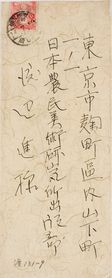 東京市麹町區内山下町
一ノ一
日本農民美術研究所出版部
進様